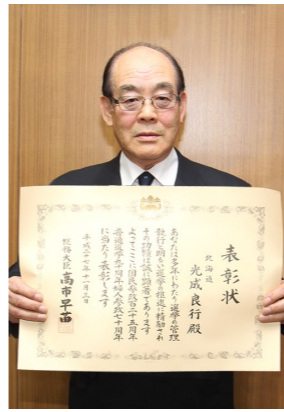 表彰状
北海道
光成良行殿
あなたは多年にわたり選挙の管理
執行と明るい選挙の推進に精励され
その功績は誠に顕著であります
よってここに国民参政百二十五周年
普通選挙九十周年婦人参政七十周年
に当たり表彰します
平成二十七年十一月三日
総務大臣 高市早苗